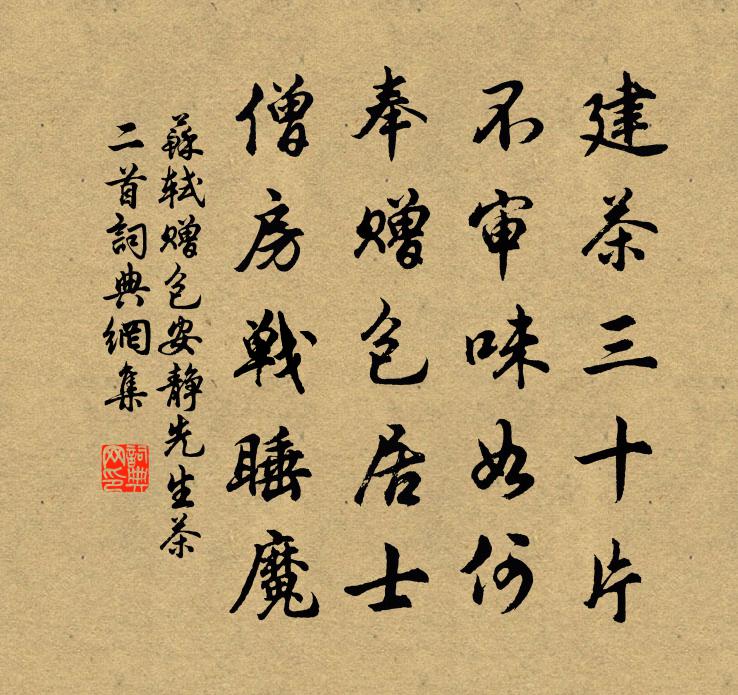 建茶三十片
不审味如何
奉赠包居士
僧房战睡魔
蘇軾赠包安静先生茶
二首詞典網集
詞典网印